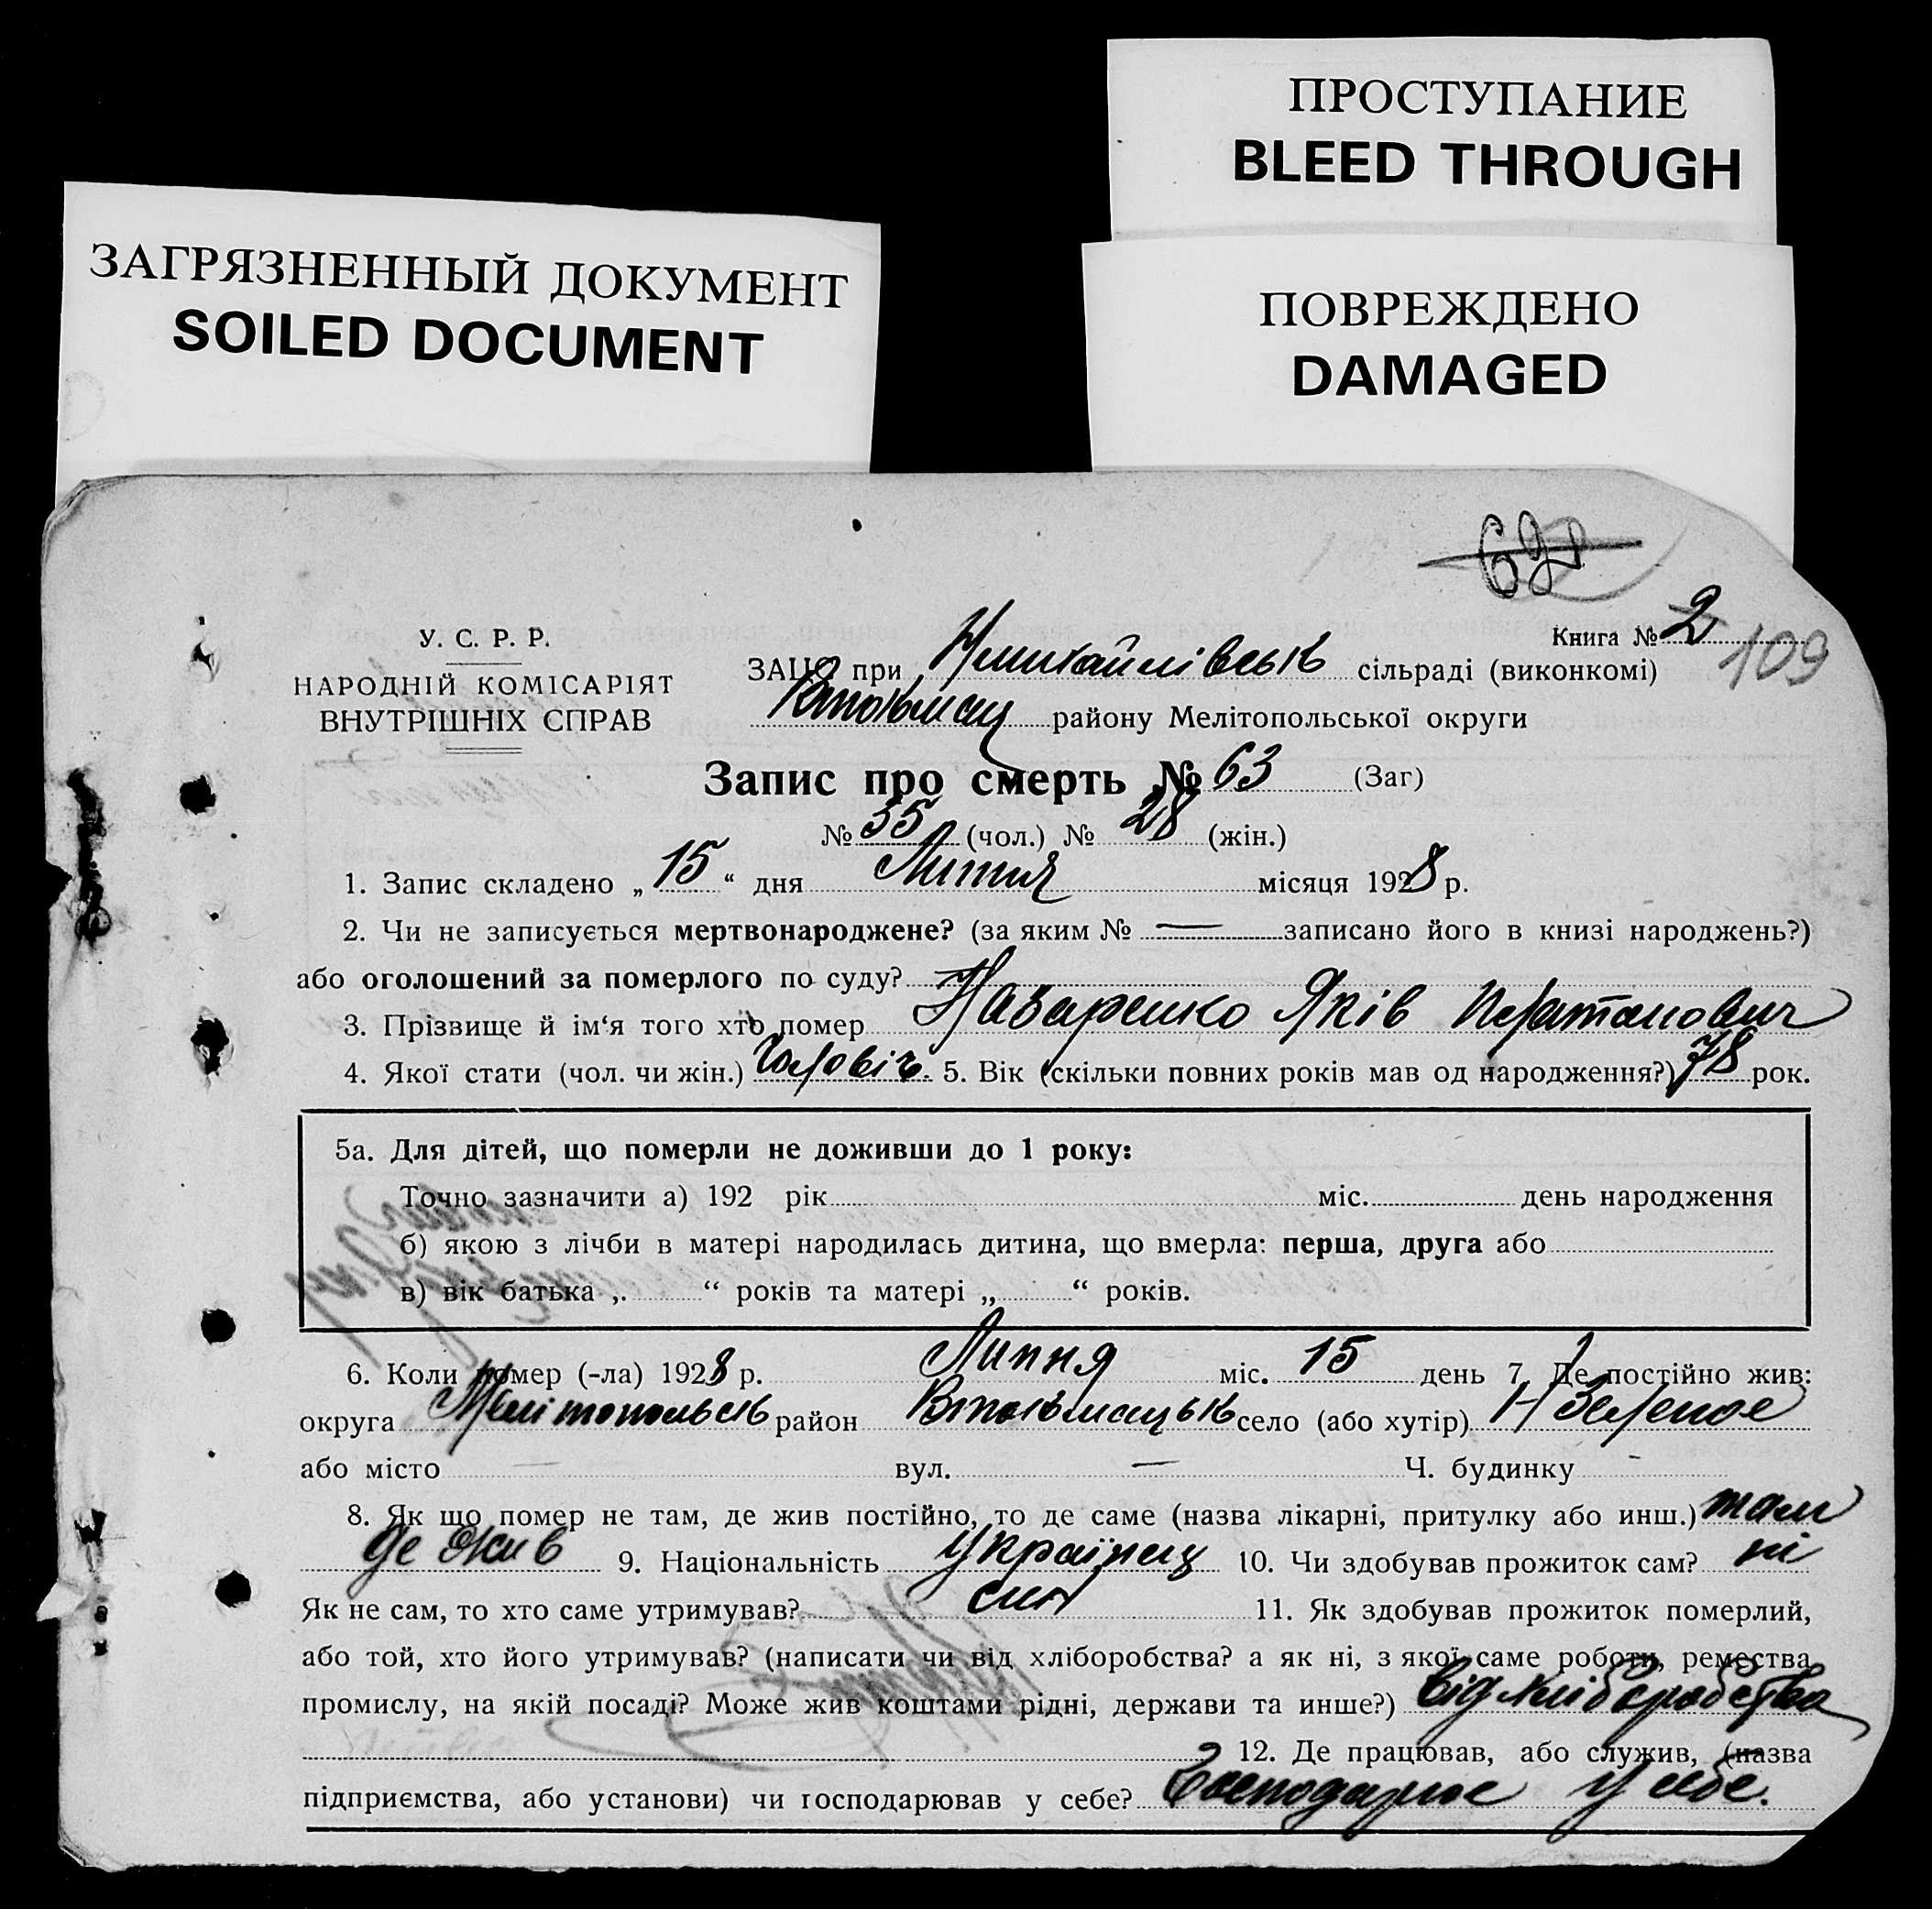 ПРОСТУПАНИЕ
BLEED THROUGH
ЗАГРЯЗНЕННЫЙ ДОКУМЕНТ
SOILED DOCUMENT
ПОВРЕЖДЕНО
DAMAGED
У. С. Р. Р.
НАРОДНІЙ КОМІСАРІЯТ
ВНУТРІШНІХ СПРАВ
Книга № 2
109
ЗАЦС при Н михайлівськ сільраді (виконкомі)
району Мелітопольської округи
Запис про смерть № 63 (Заг)
№ 35 (чол.) № 28 (жін.)
1. Запис складено „ 15 “ дня Липня місяця 1928 р.
2. Чи не записується мертвонароджене? (за яким № — записано його в книзі народжень?)
або оголошений за померлого по суду?
3. Прізвище й ім‘я того хто помер Назаренко Яків Платонович
4. Якої стати (чол. чи жін.) Чоловіч. 5. Вік (скільки повних років мав од народження?) 78 рок.
5а. Для дітей, що померли не доживши до 1 року:
Точно зазначити а) 192 рік міс. день народження
б) якою з лічби в матері народилась дитина, що вмерла: перша, друга або
в) вік батька „ “ років та матері „ “ років.
6. Коли помер (-ла) 1928 р. Липня міс. 15 день 7. Де постійно жив:
округа Мелітопольськ район Втокмацьк село (або хутір) Н Зеленое
або місто — вул. — Ч. будинку -
8. Як що помер не там, де жив постійно, то де саме (назва лікарні, притулку або инш.) там
де жив 9. Національність Українец 10. Чи здобував прожиток сам? ні
Як не сам, то хто саме утримував? син 11. Як здобував прожиток померлий,
або той, хто його утримував? (написати чи від хліборобства? а як ні, з якої саме роботи, ремества
промислу, на якій посаді? Може жив коштами рідні, держави та инше?) від хліборобства
12. Де працював, або служив, (назва
підприємства, або установи) чи господарював у себе? у себе.